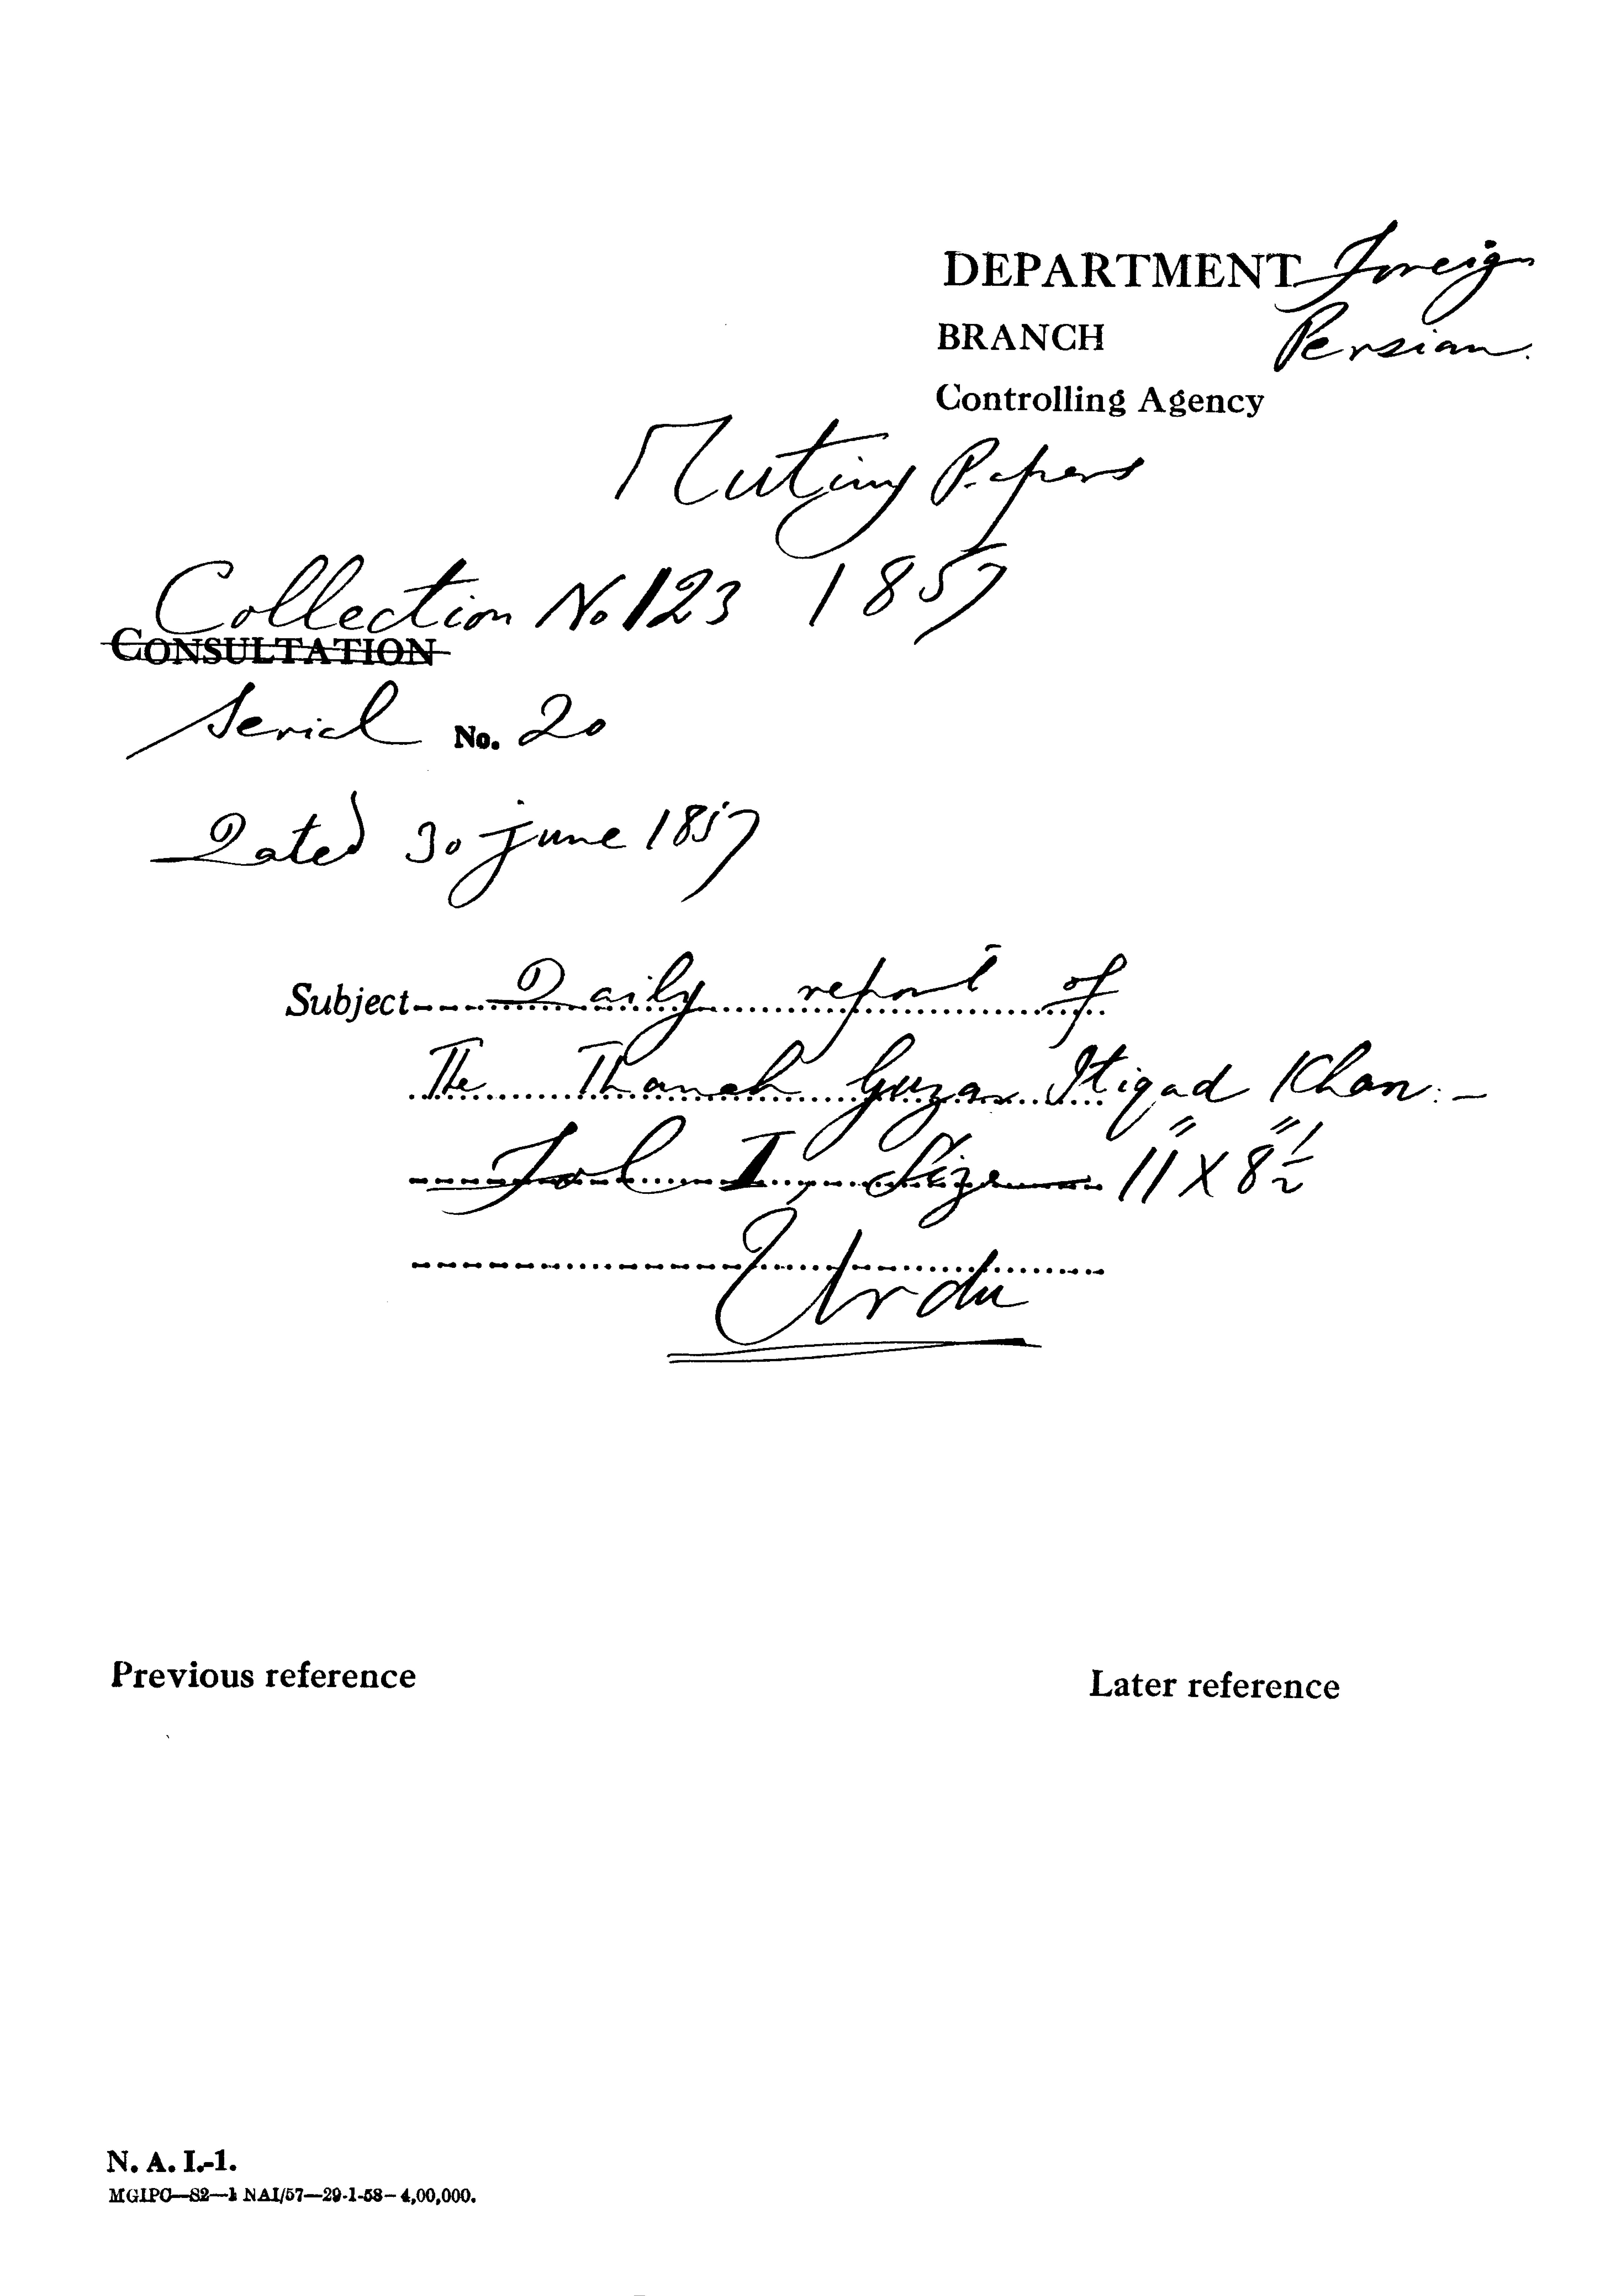 DEPARTMENT Foreign
BRANCH Persian.
Controlling Agency
Mutiny Papers
Collection No 123 1857
CONSULTATION
Serial No. 20
Dated 30 June 1857
Subject Daily report of
The Thaneh Guzar Itiqad Khan.-
Fol I, Size 11" X 8½"
Urdu
Previous reference
Later reference
N. A. I.-1.
MGIPC—S2—1 NAI/57—29-1-58—4,00,000.